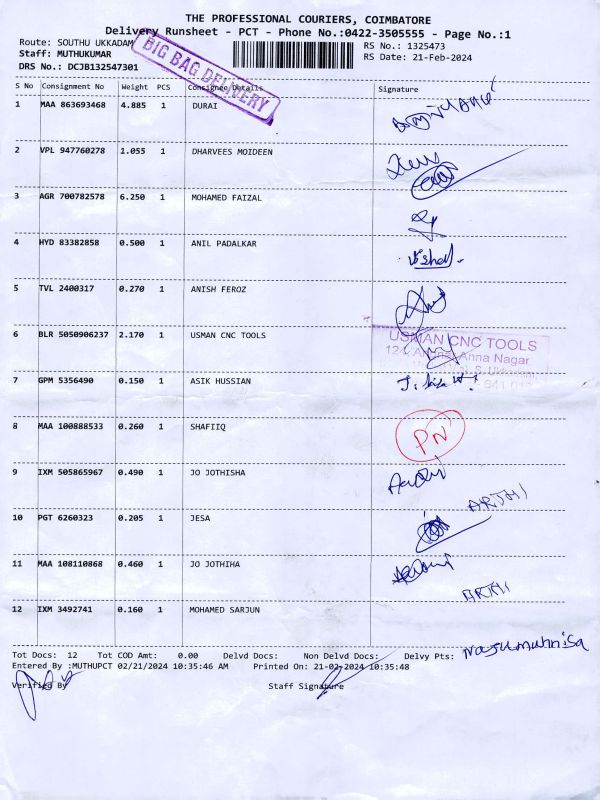 THE PROFESSIONAL COURIERS, COIMBATORE
Delivery Runsheet - PCT - Phone No.:0422-3505555 - Page No.:1
Route: SOUTHU UKKADAM
RS No.: 1325473
Staff: MUTHUKUMAR
RS Date: 21-Feb-2024
DRS No.: DCJB132547301
BIG BAG DELIVERY
S No Consignment No Weight PCS Consignee Details Signature
1 MAA 863693468 4.885 1 DURAI
2 VPL 947760278 1.055 1 DHARVEES MOIDEEN
3 AGR 700782578 6.250 1 MOHAMED FAIZAL
4 HYD 83382858 0.500 1 ANIL PADALKAR
Vishal.
5 TVL 2400317 0.270 1 ANISH FEROZ
6 BLR 5050906237 2.170 1 USMAN CNC TOOLS
USMAN CNC TOOLS
Anna Nagar
7 GPM 5356490 0.150 1 ASIK HUSSIAN
8 MAA 100888533 0.260 1 SHAFIIQ
PN
9 IXM 505865967 0.490 1 JO JOTHISHA
ARTHI
10 PGT 6260323 0.205 1 JESA
11 MAA 108110868 0.460 1 JO JOTHIHA
ARTHI
12 IXM 3492741 0.160 1 MOHAMED SARJUN
Nagumuhnisa
Tot Docs: 12 Tot COD Amt: 0.00 Delvd Docs: Non Delvd Docs: Delvy Pts:
Entered By :MUTHUPCT 02/21/2024 10:35:46 AM Printed On: 21-02-2024 10:35:48
Verified By Staff Signature